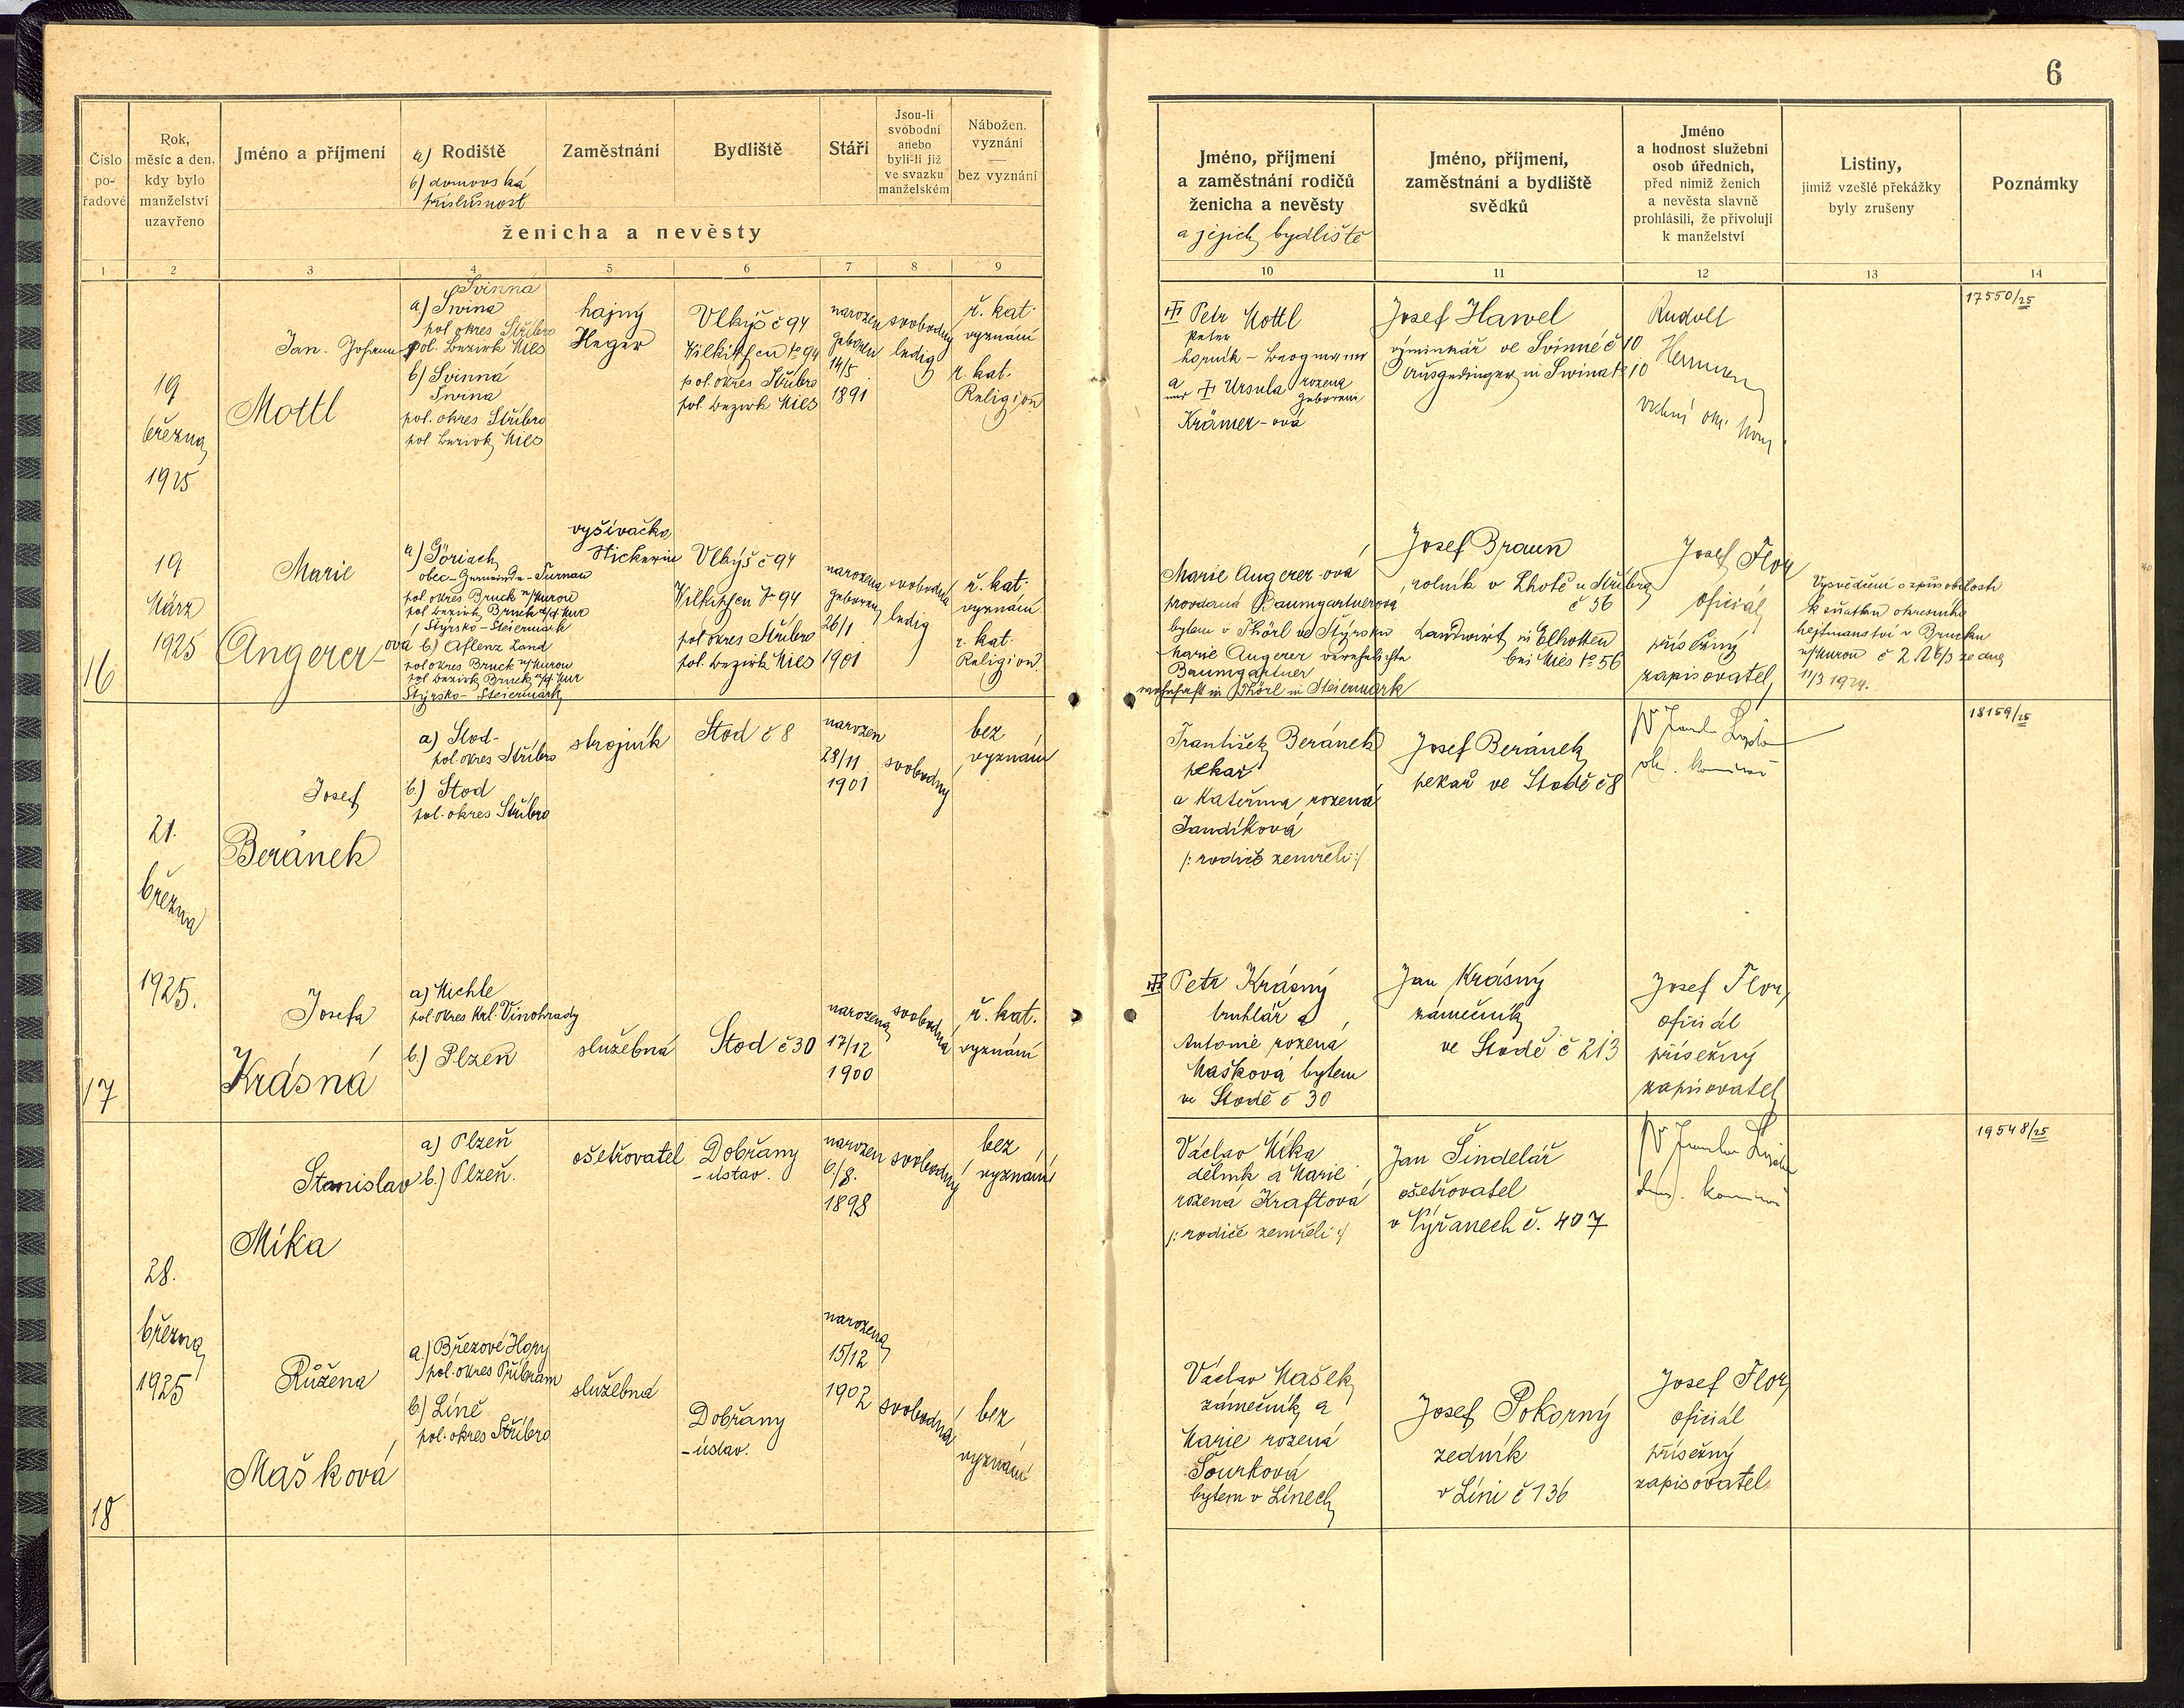 6
Číslo
po-
řadové
Rok,
měsíc a den,
kdy bylo
manželství
uzavřeno
Jméno a příjmení
a) Rodiště
b) domovská
příslušnost
Zaměstnání
Bydliště
Stáří
Jsou-li
svobodni
anebo
byli-li již
ve svazku
manželském
Nábožen.
vyznání
bez vyznání
ženicha a nevěsty
Jméno, příjmení
a zaměstnání rodičů
ženicha a nevěsty
a jejich bydliště
Jméno, příjmení,
zaměstnání a bydliště
svědků
Jméno
a hodnost služební
osob úředních,
před nimiž ženich
a nevěsta slavně
prohlásili, že přivolují
k manželství
Listiny,
jimiž vzešlé překážky
byly zrušeny
Poznámky
1 2 3 4 5 6 7 8 9 10 11 12 13 14
16
19
března
1925
19
März
1925
Jan. Johann
Mottl
Svinná
a) Swina
pol. okres Stříbro
pol. Bezirk Mies
b) Svinná
Swina
pol. okres Stříbro
pol. Bezirk Mies
hajný
Heger
Vlkýš č 94
Wilkischen No 94
pol. okres Stříbro
pol. Bezirk Mies
narozen
geboren
14/5
1891
svobodný
ledig
ř. kat.
vyznání
r. kat.
Religion
Petr Mottl
Peter
horník - Bergmann
a
und Ursula rozená
geborene
Krämer-ová
Josef Hawel
výminkář ve Svinné č 10
Ausgedinger in Swina No 10
Rudolf
17550/25
Marie
Angerer-ová
a) Göriach
obec - Gemeinde - Turnau
pol. okres Bruck n/Murou
pol. Bezirk Bruck a/d Mur
Štýrsko - Steiermark
b) Aflenz Land
pol. okres Bruck n/Murou
pol. Bezirk Bruck a/d Mur
Štýrsko - Steiermark
vyšívačka
Stickerin
Vlkýš č 94
Wilkischen No 94
pol. okres Stříbro
pol. Bezirk Mies
narozena
geboren
26/1
1901
svobodna
ledig
ř. kat.
vyznání
r. kat.
Religion
Marie Angerer-ová
provdaná Baumgartnerová
bytem v Thörl ve Štýrsku
Marie Angerer verehelichte
Baumgartner
wohnhaft in Thörl in Steiermark
Josef Braun
rolník v Lhotě u Stříbra
č 56
Landwirt in Elhotten
bei Mies No 56
Josef Flor
oficiál
přísežný
zapisovatel
Vysvědčení o způsobilosti
k sňatku okresního
hejtmanství v Brucku
n/Murou č 2 A 6/3 ze dne
11/3 1924.
17
21.
března
1925.
Josef
Beránek
a) Stod
pol. okres Stříbro
b.) Stod
pol. okres Stříbro
strojník
Stod č 8
narozen
28/11
1901
svobodný
bez
vyznání
František Beránek
pekař
a Kateřina rozená
Jandíková
/: rodiče zemřeli :/
Josef Beránek
pekař ve Stodě č 8
18159/25
Josefa
Krásná
a) Michle
pol. okres Krl. Vinohrady
b.) Plzeň
služebná
Stod č 30
narozena
17/12
1900
svobodna
ř. kat.
vyznání
Petr Krásný
truhlář a
Antonie rozená
Mašková bytem
ve Stodě č 30
Jan Krásný
zámečník
ve Stodě č 213
Josef Flor,
oficiál
přísežný
zapisovatel
18
28.
března
1925
Stanislav
Míka
a) Plzeň
b.) Plzeň.
ošetřovatel
Dobřany
- ústav.
narozen
6/8.
1898
svobodný
bez
vyznání
Václav Míka
dělník a Marie
rozená Kraftová
/: rodiče zemřeli :/
Jan Šindelář
ošetřovatel
v Týřanech č. 407
19548/25
Růžena
Mašková
a.) Březové Hory
pol. okres Příbram
b) Líně
pol. okres Stříbro
služebná
Dobřany
- ústav.
narozena
15/12
1902
svobodná
bez
vyznání
Václav Mašek
zámečník a
Marie rozená
Sourková
bytem v Línech
Josef Pokorný
zedník
v Líni č 136
Josef Flor,
oficiál
přísežný
zapisovatel